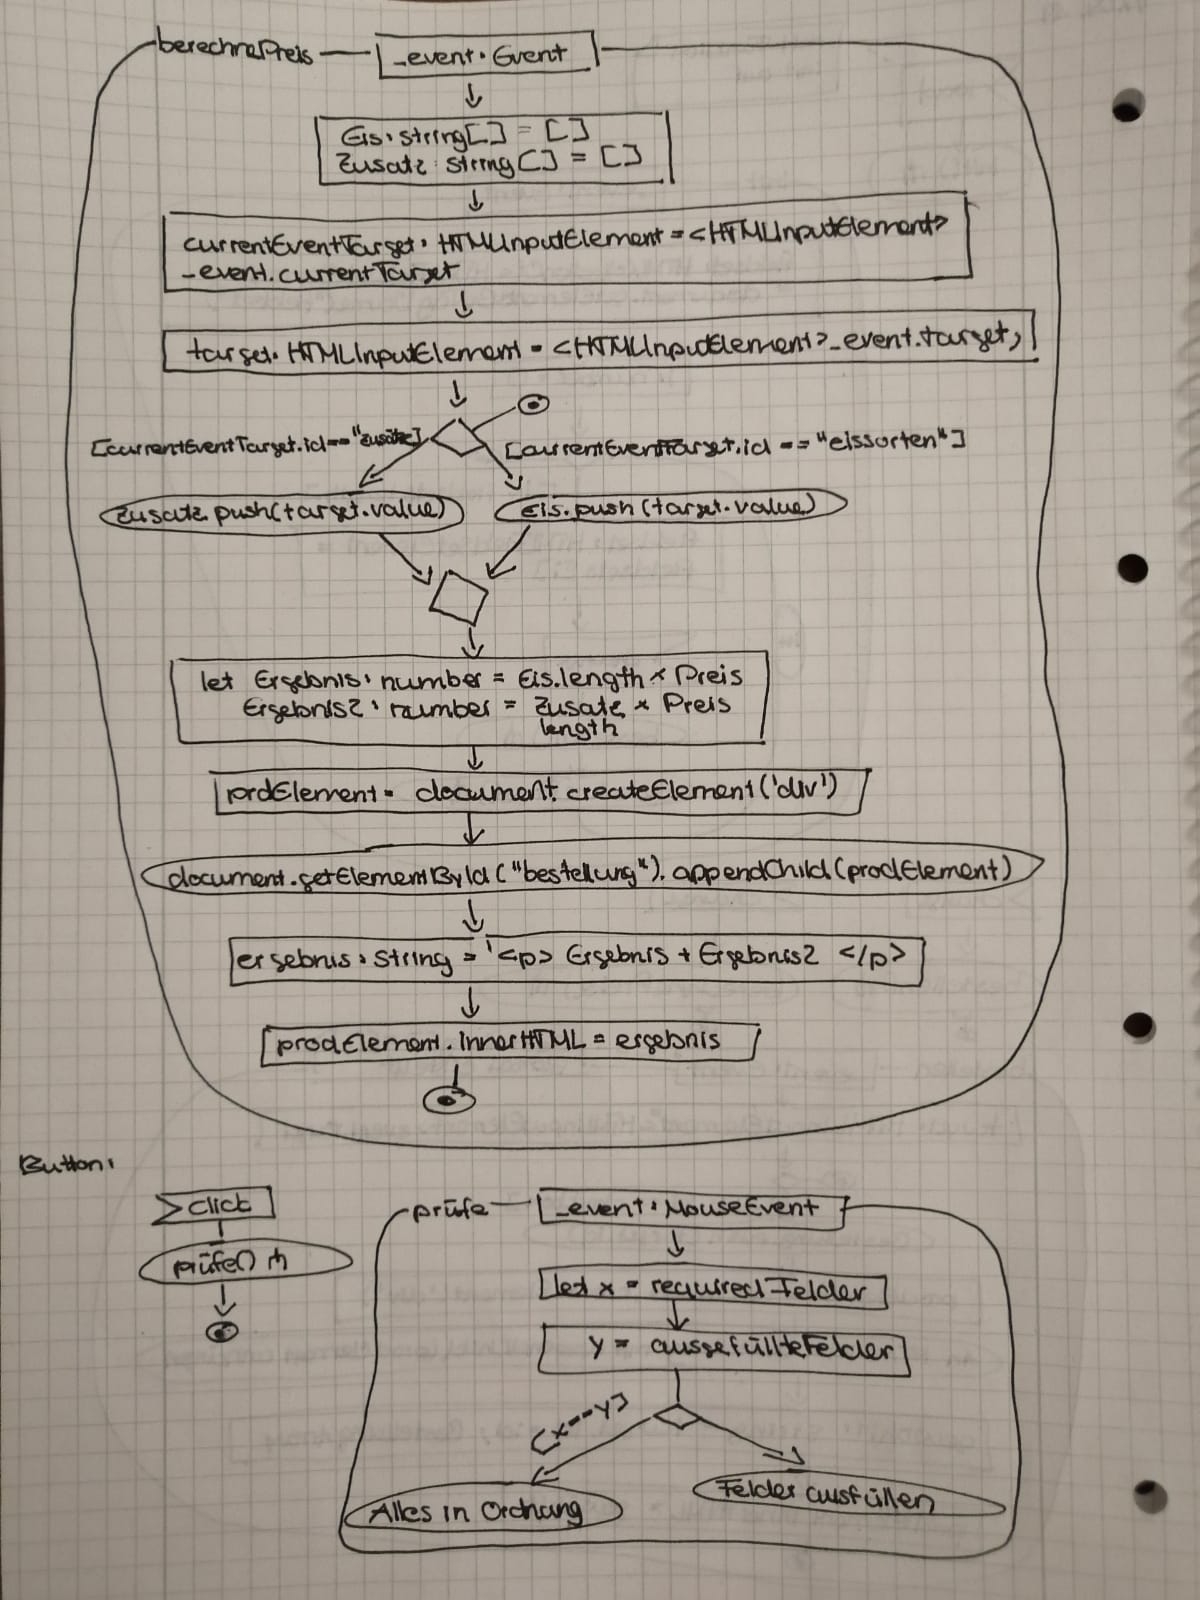 berechnePreis
_event: Event
Eis: string[] = []
Zusatz: string[] = []
currentEventTarget: HTMLInputElement = <HTMLInputElement>
_event.currentTarget
target: HTMLInputElement = <HTMLInputElement>_event.target;
[currentEventTarget.id == "Zusätze]
[currentEventTarget.id == "eissorten"]
Zusatz.push(target.value)
Eis.push(target.value)
let Ergebnis: number = Eis.length * Preis
Ergebnis2: number = Zusatz * Preis
length
prdElement = document.createElement('div')
document.getElementById("bestellung").appendChild(prodElement)
ergebnis: string = '<p> Ergebnis + Ergebnis2 </p>
prodElement.innerHTML = ergebnis
Button:
click
prüfe()
prüfe
_event: MouseEvent
let x = required-Felder
y = ausgefüllteFelder
[x==y]
Alles in Ordnung
Felder ausfüllen